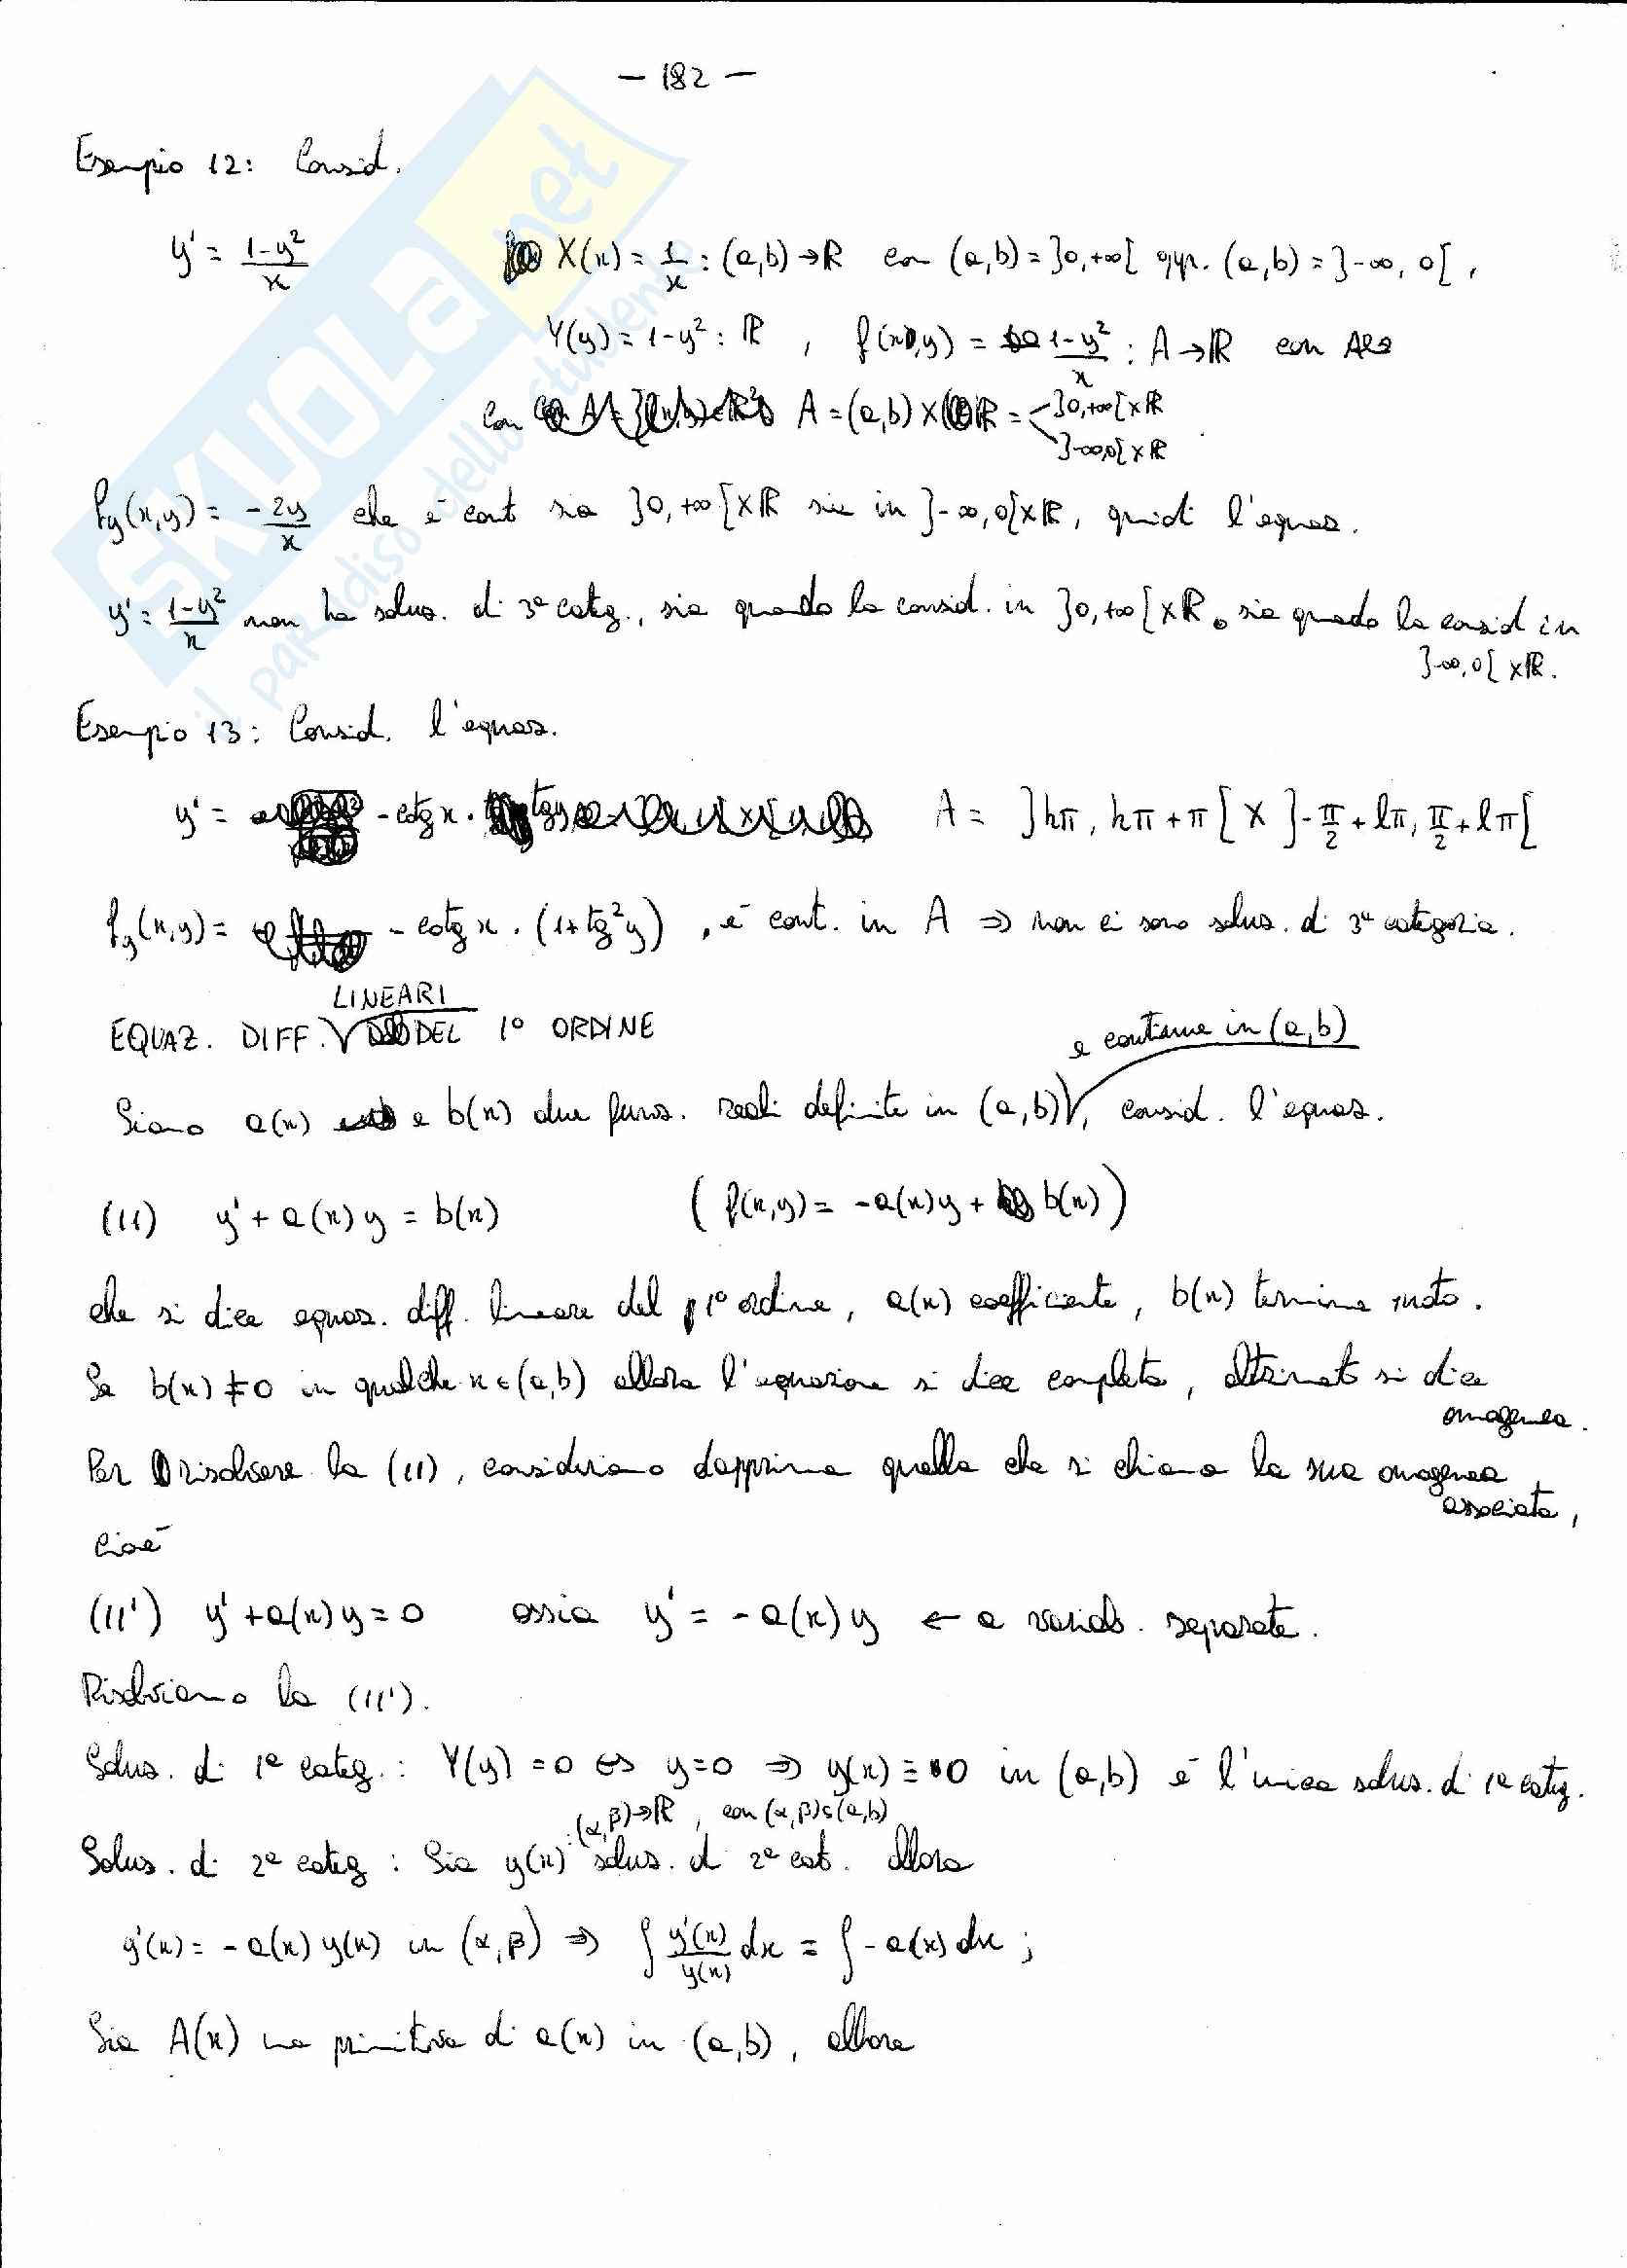 – 182 –
Esempio 12: Consid.
y' = (1-y²)/x    X(x) = 1/x : (a,b) → ℝ con (a,b) = ]0,+∞[ opp. (a,b) = ]-∞, 0[ ,
Y(y) = 1-y² : ℝ , f(x,y) = (1-y²)/x : A → ℝ con
con A = (a,b) × ℝ = ]0,+∞[ × ℝ
]-∞,0[ × ℝ
f_y(x,y) = - 2y/x che è cont sia ]0,+∞[ × ℝ sia in ]-∞,0[ × ℝ, quindi l'equaz.
y' = (1-y²)/x non ha soluz. di 3ª categ., sia quando la consid. in ]0,+∞[ × ℝ, sia quando la consid in
]-∞,0[ × ℝ.
Esempio 13: Consid. l'equaz.
y' = - cotg x · tg y    A = ]hπ, hπ+π[ × ]-π/2 + lπ, π/2 + lπ[
f_y(x,y) = - cotg x · (1+tg²y) , è cont. in A ⇒ non ci sono soluz. di 3ª categoria.
EQUAZ. DIFF. LINEARI DEL 1° ORDINE
Siano a(x) e b(x) due funz. reali definite in (a,b) e continue in (a,b), consid. l'equaz.
(11) y' + a(x) y = b(x)    ( f(x,y) = -a(x)y + b(x) )
che si dice equaz. diff. lineare del 1° ordine, a(x) coefficiente, b(x) termine noto.
Se b(x) ≠ 0 in qualche x ∈ (a,b) allora l'equazione si dice completa, altrimenti si dice
omogenea.
Per risolvere la (11), consideriamo dapprima quella che si chiama la sua omogenea
associata,
cioè
(11') y' + a(x) y = 0 ossia y' = - a(x) y ← a variab. separate.
Risolviamo la (11').
Soluz. di 1ª categ. : Y(y) = 0 ⇔ y=0 ⇒ y(x) ≡ 0 in (a,b) è l'unica soluz. di 1ª categ.
Soluz. di 2ª categ : Sia y(x) : (α,β) → ℝ, con (α,β) ⊆ (a,b) soluz. di 2ª cat. Allora
y'(x) = - a(x) y(x) in (α,β) ⇒ ∫ y'(x)/y(x) dx = ∫ - a(x) dx ;
Sia A(x) una primitiva di a(x) in (a,b), allora
SKUOLA.net
il paradiso dello studente